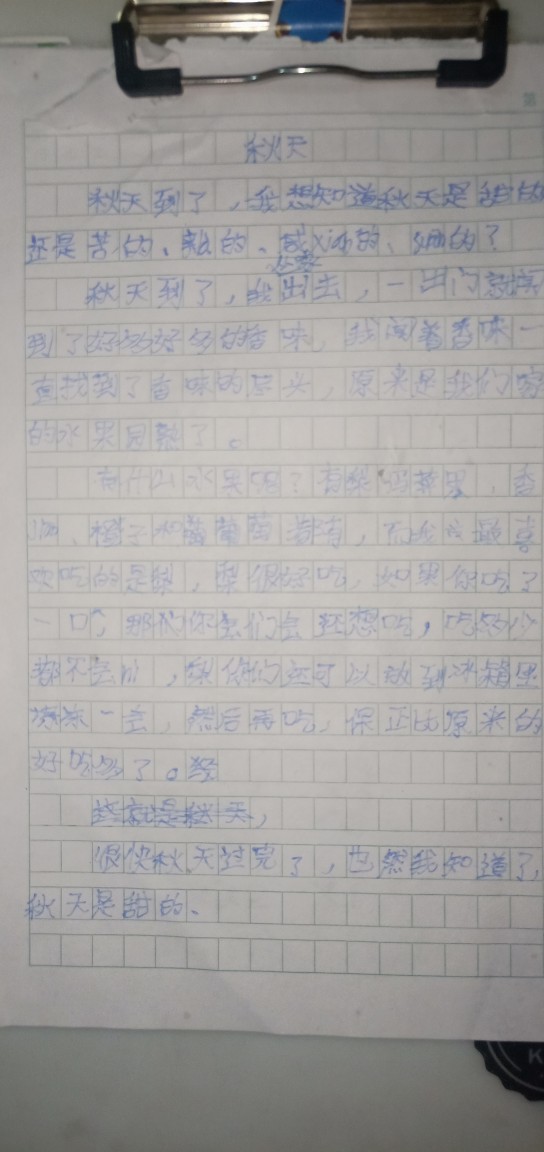 秋天
秋天到了，我想知道秋天是甜的
还是苦的、辣的、或 的、 的？
秋天到了，我出去，一出门就
到了好多好多的香味，我闻着香味一
直找到了香味的 头，原来是我们家
的水果 熟了。
有什么水果呢？有梨 苹果、香
、橙子和葡萄 都有，而我 最喜
欢吃的是梨，梨很好吃，如果你吃了
一口，那 你 们会还想吃，吃多少
都不会 ，梨你们还可以放到冰箱里
冻一会，然后再吃，保正比原来的
好吃多了。
就是秋天，
很快秋天过完了，也 我知道了，
秋天是甜的、